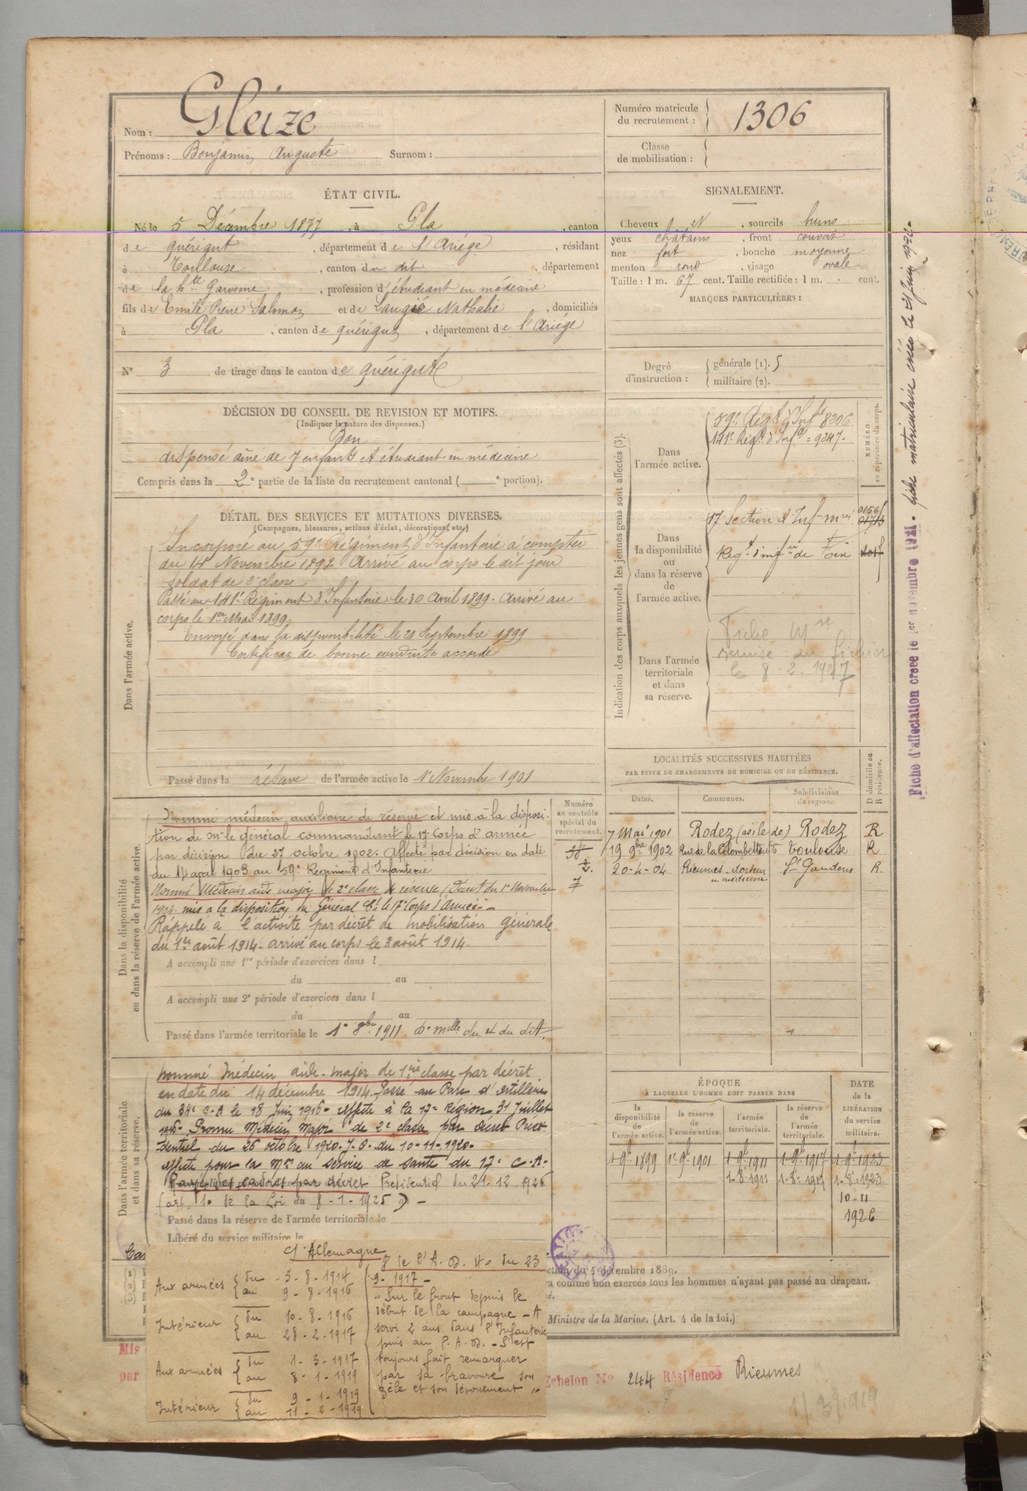 Nom : Gleize
Prénoms : Benjamin Auguste Surnom :
Numéro matricule du recrutement : 1306
Classe de mobilisation :
ÉTAT CIVIL.
Né le 5 Décembre 1877, à Pla, canton
de Quérigut, département de l'Ariège, résidant
à Toulouse, canton du dit, département
de la Hte Garonne, profession d'étudiant en médecine
fils de Emile Pierre Salomon et de Nathalie, domiciliés
à Pla, canton de Quérigut, département de l'Ariège
N° 3 de tirage dans le canton de Quérigut
SIGNALEMENT.
Cheveux et, sourcils bruns
yeux châtains, front couvert
nez fort, bouche moyenne
menton rond, visage ovale
Taille : 1 m. 67 cent. Taille rectifiée : 1 m. cent.
MARQUES PARTICULIÈRES :
Degré d'instruction :
générale (1). 5
militaire (2).
DÉCISION DU CONSEIL DE REVISION ET MOTIFS.
(Indiquer la nature des dispenses.)
Bon
dispensé aîné de 7 enfants et étudiant en médecine
Compris dans la 2e partie de la liste du recrutement cantonal ( e portion).
DÉTAIL DES SERVICES ET MUTATIONS DIVERSES.
(Campagnes, blessures, actions d'éclat, décorations, etc.)
Dans l'armée active.
Incorporé au 59e Régiment d'Infanterie à compter
du Novembre 1898. Arrivé au corps le dit jour
soldat de 2e classe
Passé au 141e Régiment d'Infanterie le 30 Avril 1899. Arrivé au
corps le 1er Mai 1899
Envoyé dans la disponibilité le 20 Septembre 1899
Certificat de bonne conduite accordé
Passé dans la réserve de l'armée active le 1er Novembre 1901
Indication des corps auxquels les jeunes gens sont affectés (3).
NUMÉRO au répertoire du corps.
Dans l'armée active.
59e Régt d'Infie 8306
141e Régt d'Infie = 9247.
Dans la disponibilité ou dans la réserve de l'armée active.
17 Section d'Inf-miers
Régt d'infie de Foix
Dans l'armée territoriale et dans sa réserve.
Fiche Mle
remise au fichier
le 8-2.1927
LOCALITÉS SUCCESSIVES HABITÉES
PAR SUITE DE CHANGEMENTS DE DOMICILE OU DE RÉSIDENCE.
Dates. Communes. Subdivisions de région. D domicile ou R résidence.
7 Mai 1901 Rodez (asile de) Rodez R
19 9bre 1902 rue de la Colombette Toulouse R
20-4-04 Rieumes - docteur en médecine St Gaudens R.
Dans la disponibilité ou dans la réserve de l'armée active.
Numéro au contrôle spécial du recrutement.
Nommé médecin auxiliaire de réserve et mis à la disposi-
tion de Mr le général commandant le 17 Corps d'armée
par décision du 27 octobre 1902. Affecté par décision en date
du 17 avril 1903 au 59e Régiment d'Infanterie
Nommé Médecin aide major de 2e classe de réserve (Décret du 1er Novembre
1904. mis à la disposition du Général Ct le 17e Corps d'Armée. -
Rappelé à l'activité par décret de mobilisation générale
du 1er août 1914. arrivé au corps le 3 août 1914.
A accompli une 1re période d'exercices dans l
du au
A accompli une 2e période d'exercices dans l
du au
Passé dans l'armée territoriale le 1er 8bre 1911
Dans l'armée territoriale et dans sa réserve.
Nommé Médecin aide-major de 1ère classe par décret
en date du 14 décembre 1914. Passé au Parc d'artillerie
du 34e C.A le 18 Juin 1916. affecté à la 17e Région 31 Juillet
Promu Médecin Major de 2e classe par décret Prési-
dentiel du 26 octobre 1920. J.O. du 10-11-1920.
affecté pour la Mon au service de santé du 17e C.A.
Rayé des cadres par décret Présidentiel du 21.12.1926
(art. 10 de la Loi du 8-1-1925) -
Passé dans la réserve de l'armée territoriale le
Libéré du service militaire le
ÉPOQUE
À LAQUELLE L'HOMME DOIT PASSER DANS
la disponibilité de l'armée active. la réserve de l'armée active. l'armée territoriale. la réserve de l'armée territoriale.
DATE de la LIBÉRATION du service militaire.
1-9e 1899 1-9e 1901 1-9e 1911 1-9e 1917 1-9e 1923
1-8-1911 1-8-1917 1-8-1923
10-11
1926
Ct Allemagne
Aux armées du 3-8-1914 au 9-8-1916
Intérieur du 10-8-1916 au 28-2-1917
Aux armées du 1-3-1917 au 8-1-1919
Intérieur du 9-1-1919 au 11-2-1919
de l'A.D. du 23
9-1917 -
"Sur le front depuis le
début de la campagne - A
servi 2 ans dans l'Infanterie
puis au P.A.D. - S'est
toujours fait remarquer
par sa bravoure son
zèle et son dévouement"
décembre 1889.
comme non exercés tous les hommes n'ayant pas passé au drapeau.
Ministre de la Marine. (Art. 4 de la loi.)
Echelon No 244 Résidence Rieumes
1/3/1919
Fiche d'affectation créée le 1er novembre 1921. fiche matriculaire créée le 21 juin 1920.